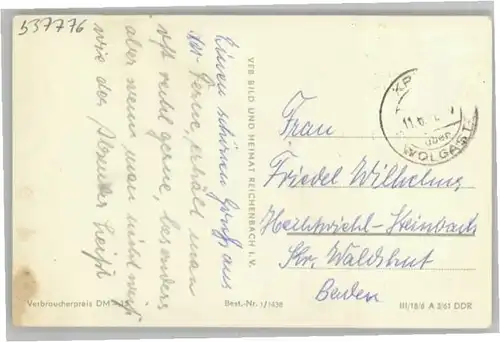 537776
Einen schönen Gruß aus
der Ferne, erhält man
oft recht gerne, besonders
aber wenn man nicht weiß
wie der Absender heißt
VEB BILD UND HEIMAT REICHENBACH I. V.
über
WOLGAST
Frau
Friedel Wilhelms
Steinbach
Kr. Waldshut
Baden
Verbraucherpreis DM
Best.-Nr. 1/1438
III/18/6 A 2/61 DDR